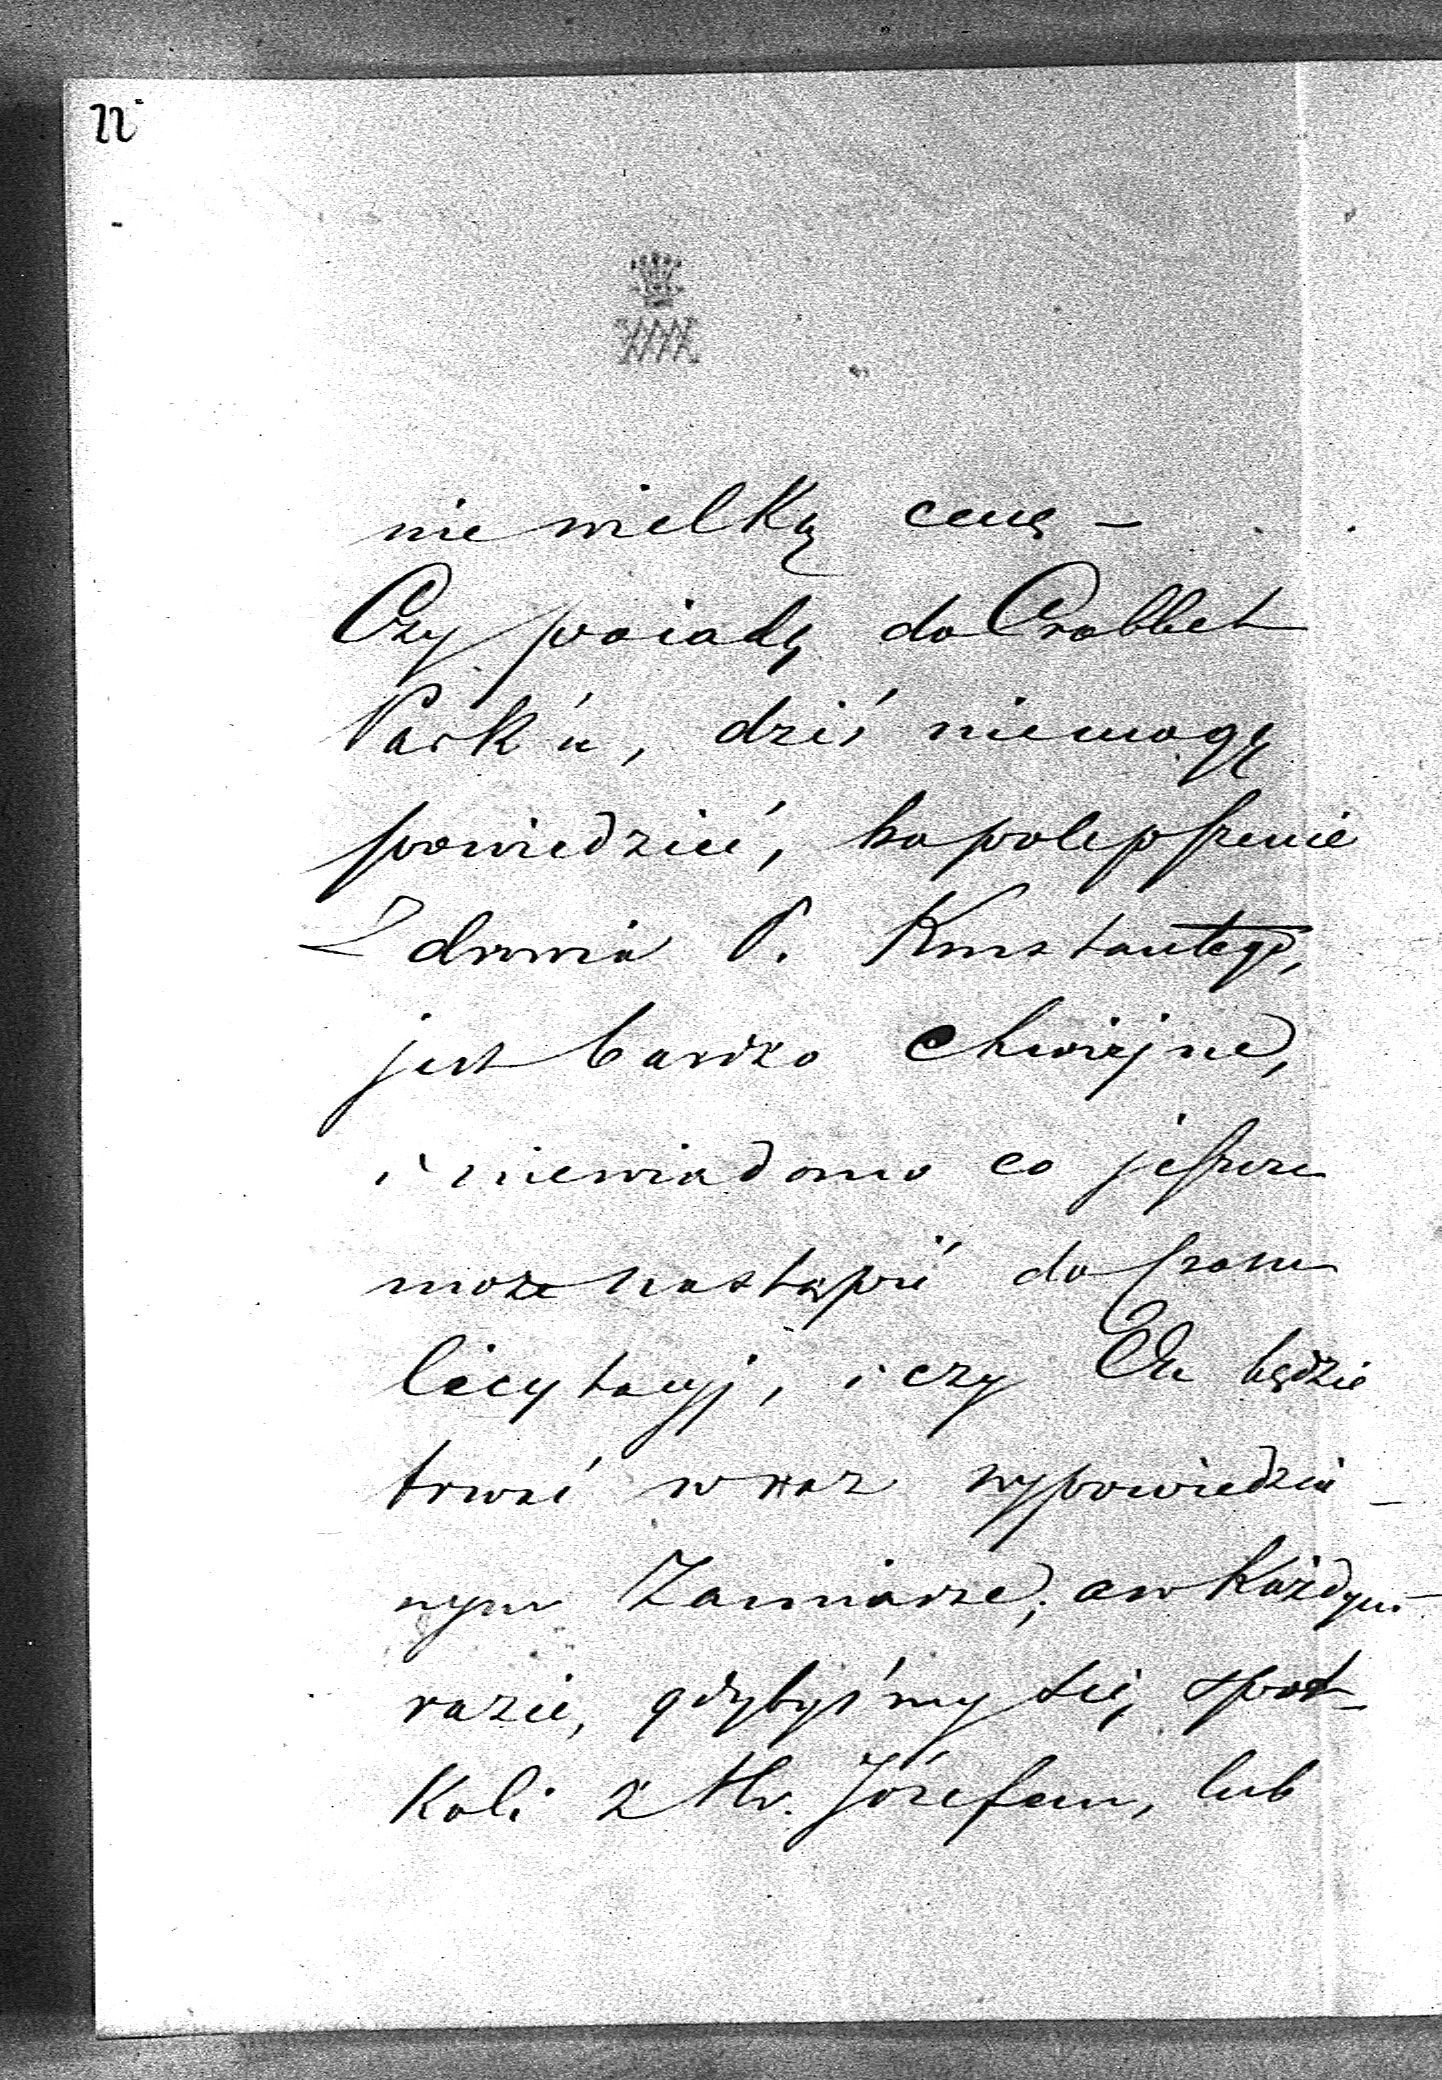 22
nie wielką cenę –
Czy poiadę do Crabbet
Park'u, dziś niemogę
powiedzieć, bo polepszenie
Zdrowia P. Konstantego,
jest bardzo chwiejne,
i niewiadomo co jeszcze
może nastąpić do czasu
licytacyj, i czy On będzie
trwać w raz wypowiedzia-
nym Zamiarze; a w każdym
razie, gdybyśmy się spot-
kali z Hr. Józefem, lub